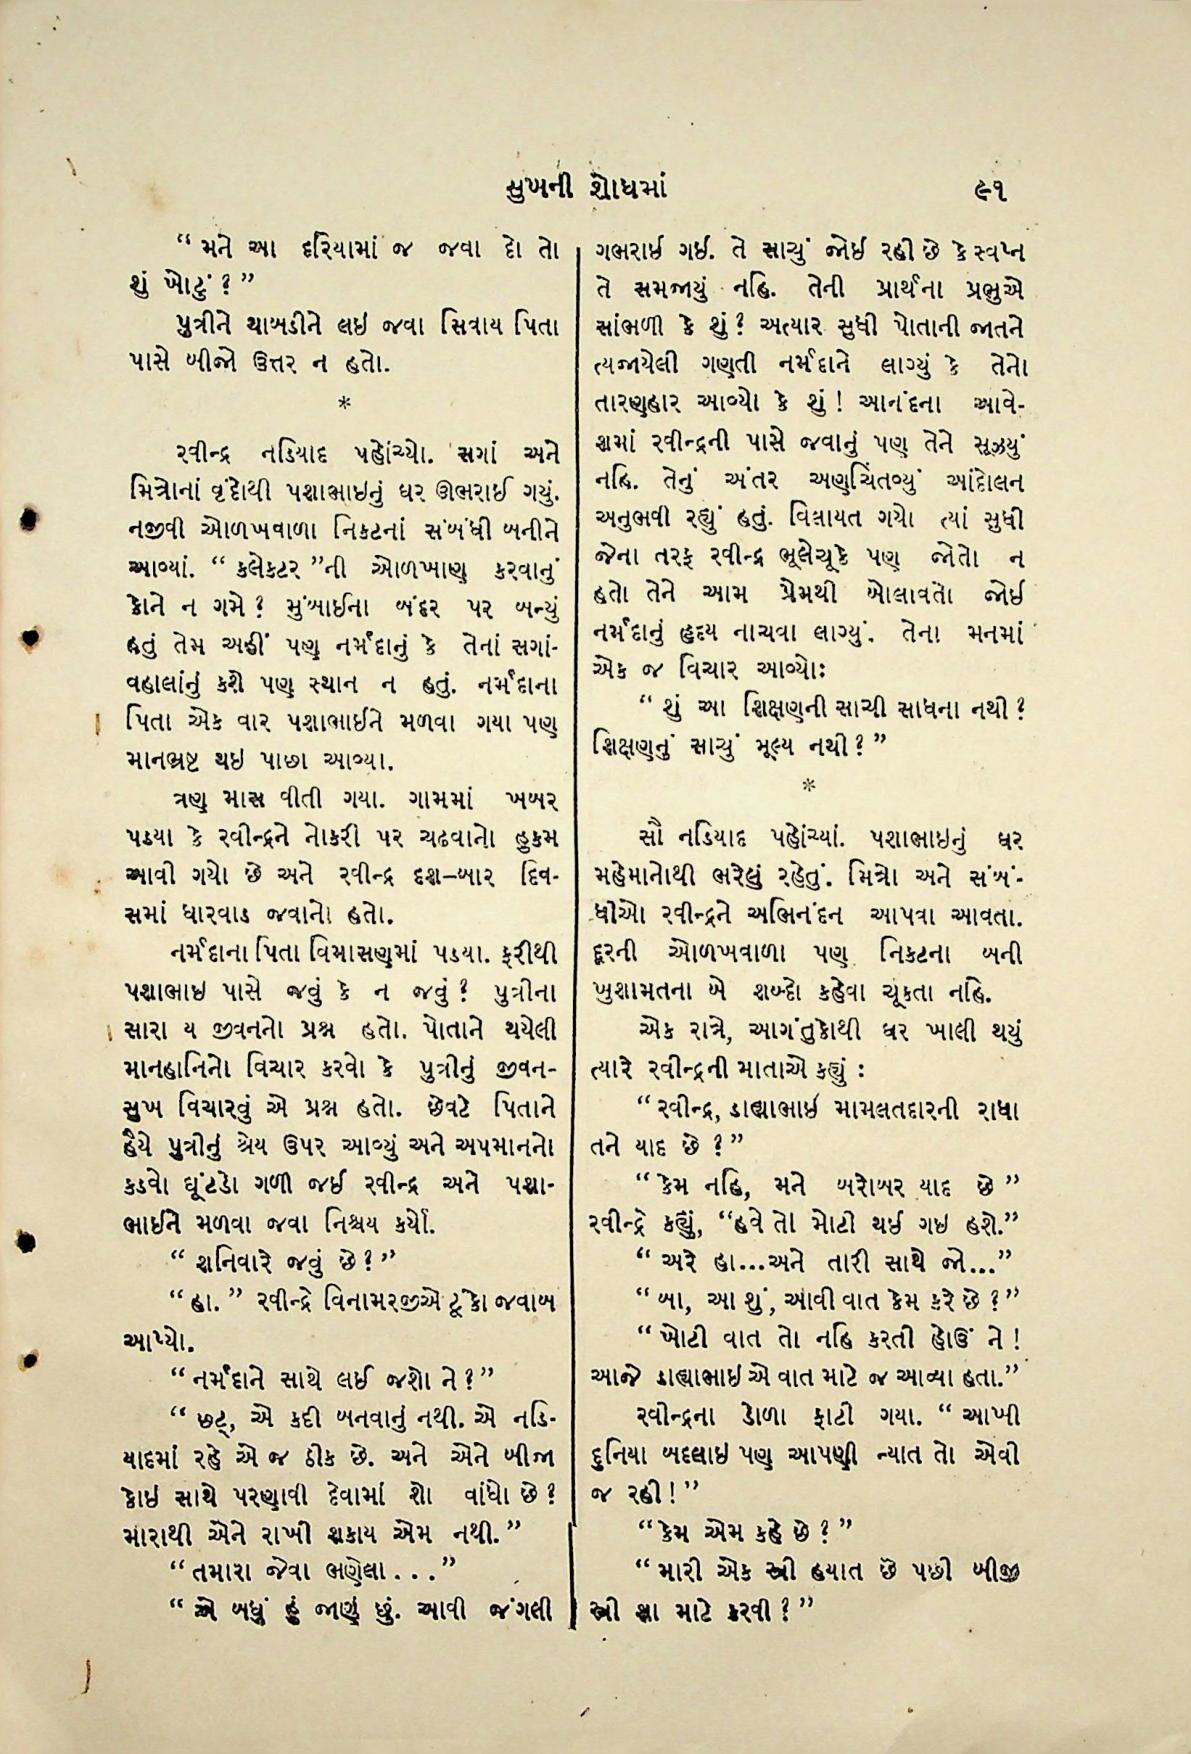 સુખની શોધમાં ૯૧
“મને આ દરિયામાં જ જવા દો તો
શું ખોટું?”
પુત્રીને થાબડીને લઇ જવા સિવાય પિતા
પાસે બીજો ઉત્તર ન હતો.
*
રવીન્દ્ર નડિયાદ પહોંચ્યો. સગાં અને
મિત્રોનાં વૃંદોથી પશાભાઇનું ઘર ઊભરાઈ ગયું.
નજીવી ઓળખવાળા નિકટનાં સંબંધી બનીને
આવ્યાં. “કલેક્ટર”ની ઓળખાણ કરવાનું
કોને ન ગમે? મુંબાઈના બંદર પર બન્યું
હતું તેમ અહીં પણ નર્મદાનું કે તેનાં સગાં-
વહાલાંનું કશે પણ સ્થાન ન હતું. નર્મદાના
પિતા એક વાર પશાભાઈને મળવા ગયા પણ
માનભ્રષ્ટ થઇ પાછા આવ્યા.
ત્રણ માસ વીતી ગયા. ગામમાં ખબર
પડયા કે રવીન્દ્રને નોકરી પર ચઢવાનો હુકમ
આવી ગયો છે અને રવીન્દ્ર દશ–બાર દિવ-
સમાં ધારવાડ જવાનો હતો.
નર્મદાના પિતા વિમાસણમાં પડયા. ફરીથી
પશાભાઇ પાસે જવું કે ન જવું? પુત્રીના
સારા ય જીવનનો પ્રશ્ન હતો. પોતાને થયેલી
માનહાનિનો વિચાર કરવો કે પુત્રીનું જીવન-
સુખ વિચારવું એ પ્રશ્ન હતો. છેવટે પિતાને
હૈયે પુત્રીનું શ્રેય ઉપર આવ્યું અને અપમાનનો
કડવો ઘૂંટડો ગળી જઈ રવીન્દ્ર અને પશા-
ભાઈને મળવા જવા નિશ્ચય કર્યો.
“શનિવારે જવું છે?”
“હા.” રવીન્દ્રે વિનામરજીએ ટૂંકો જવાબ
આપ્યો.
“નર્મદાને સાથે લઈ જશો ને?”
“છટ્, એ કદી બનવાનું નથી. એ નડિ-
યાદમાં રહે એ જ ઠીક છે. અને એને બીજા
કોઇ સાથે પરણાવી દેવામાં શો વાંધો છે?
મારાથી એને રાખી શકાય એમ નથી.”
“તમારા જેવા ભણેલા...”
“એ બધું હું જાણું છું. આવી જંગલી
ગભરાઈ ગઈ. તે સાચું જોઈ રહી છે કે સ્વપ્ન
તે સમજાયું નહિ. તેની પ્રાર્થના પ્રભુએ
સાંભળી કે શું? અત્યાર સુધી પોતાની જાતને
ત્યજાયેલી ગણતી નર્મદાને લાગ્યું કે તેનો
તારણહાર આવ્યો કે શું! આનંદના આવે-
શમાં રવીન્દ્રની પાસે જવાનું પણ તેને સૂઝયું
નહિ. તેનું અંતર અણચિંતવ્યું આંદોલન
અનુભવી રહ્યું હતું. વિલાયત ગયો ત્યાં સુધી
જેના તરફ રવીન્દ્ર ભૂલેચૂકે પણ જોતો ન
હતો તેને આમ પ્રેમથી બોલાવતો જોઈ
નર્મદાનું હૃદય નાચવા લાગ્યું. તેના મનમાં
એક જ વિચાર આવ્યો:
“શું આ શિક્ષણની સાચી સાધના નથી?
શિક્ષણનું સાચું મૂલ્ય નથી?”
*
સૌ નડિયાદ પહોંચ્યાં. પશાભાઇનું ઘર
મહેમાનોથી ભરેલું રહેતું. મિત્રો અને સંબં-
ધીઓ રવીન્દ્રને અભિનંદન આપવા આવતા.
દૂરની ઓળખવાળા પણ નિકટના બની
ખુશામતના બે શબ્દો કહેવા ચૂકતા નહિ.
એક રાત્રે, આગંતુકોથી ઘર ખાલી થયું
ત્યારે રવીન્દ્રની માતાએ કહ્યું :
“રવીન્દ્ર, ડાહ્યાભાઈ મામલતદારની રાધા
તને યાદ છે?”
“કેમ નહિ, મને બરોબર યાદ છે”
રવીન્દ્રે કહ્યું, “હવે તો મોટી થઈ ગઇ હશે.”
“અરે હા...અને તારી સાથે જો...”
“બા, આ શું, આવી વાત કેમ કરે છે?”
“ખોટી વાત તો નહિ કરતી હોઉં ને!
આજે ડાહ્યાભાઇ એ વાત માટે જ આવ્યા હતા.”
રવીન્દ્રના ડોળા ફાટી ગયા. “આખી
દુનિયા બદલાઇ પણ આપણી ન્યાત તો એવી
જ રહી!”
“કેમ એમ કહે છે?”
“મારી એક સ્ત્રી હયાત છે પછી બીજી
સ્ત્રી શા માટે કરવી?”